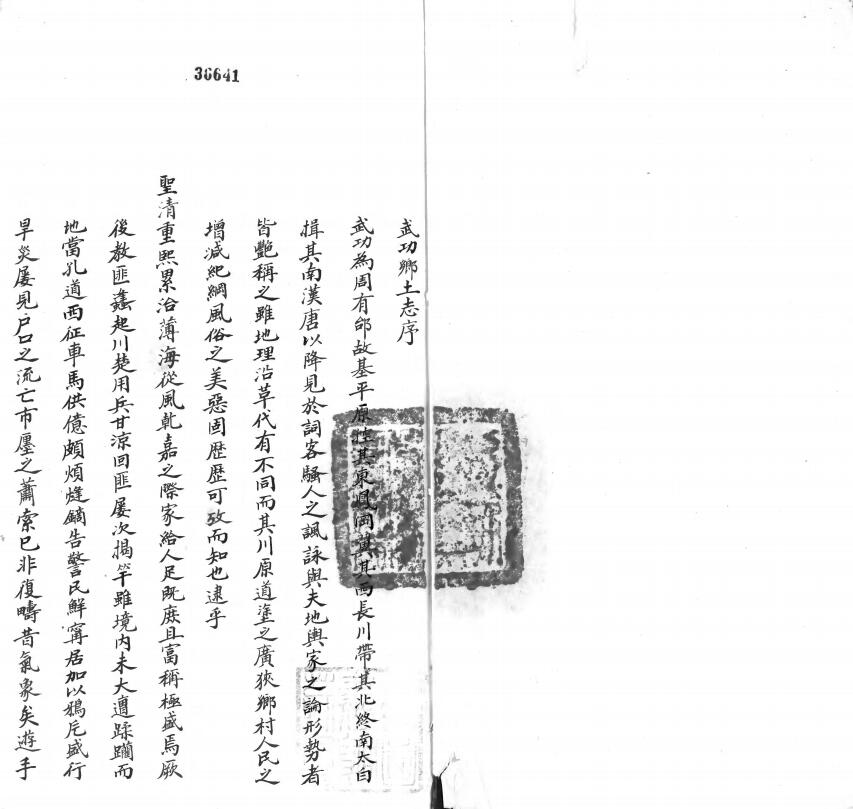 36641
武功鄉土志序
武功為周有邰故基平原控其東鳳岡冀其西長川帶其北終南太白
揖其南漢唐以降見於詞客騷人之諷詠與夫地輿家之論形勢者
皆艷稱之雖地理沿革代有不同而其川原道塗之廣狹鄉村人民之
增減紀綱風俗之美惡固歷歷可攷而知也逮乎
聖清重熙累洽薄海從風乾嘉之際家給人足既庶且富稱極盛焉厥
後教匪蠭起川楚用兵甘涼回匪屢次揭竿雖境內未大遭蹂躪而
地當孔道西征車馬供億頗煩烽鏑告警民鮮甯居加以鴉片盛行
旱災屢見戶口之流亡市廛之蕭索已非復疇昔氣象矣遊手